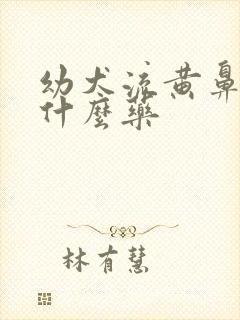 幼犬流黄鼻
什麼藥
林有慧